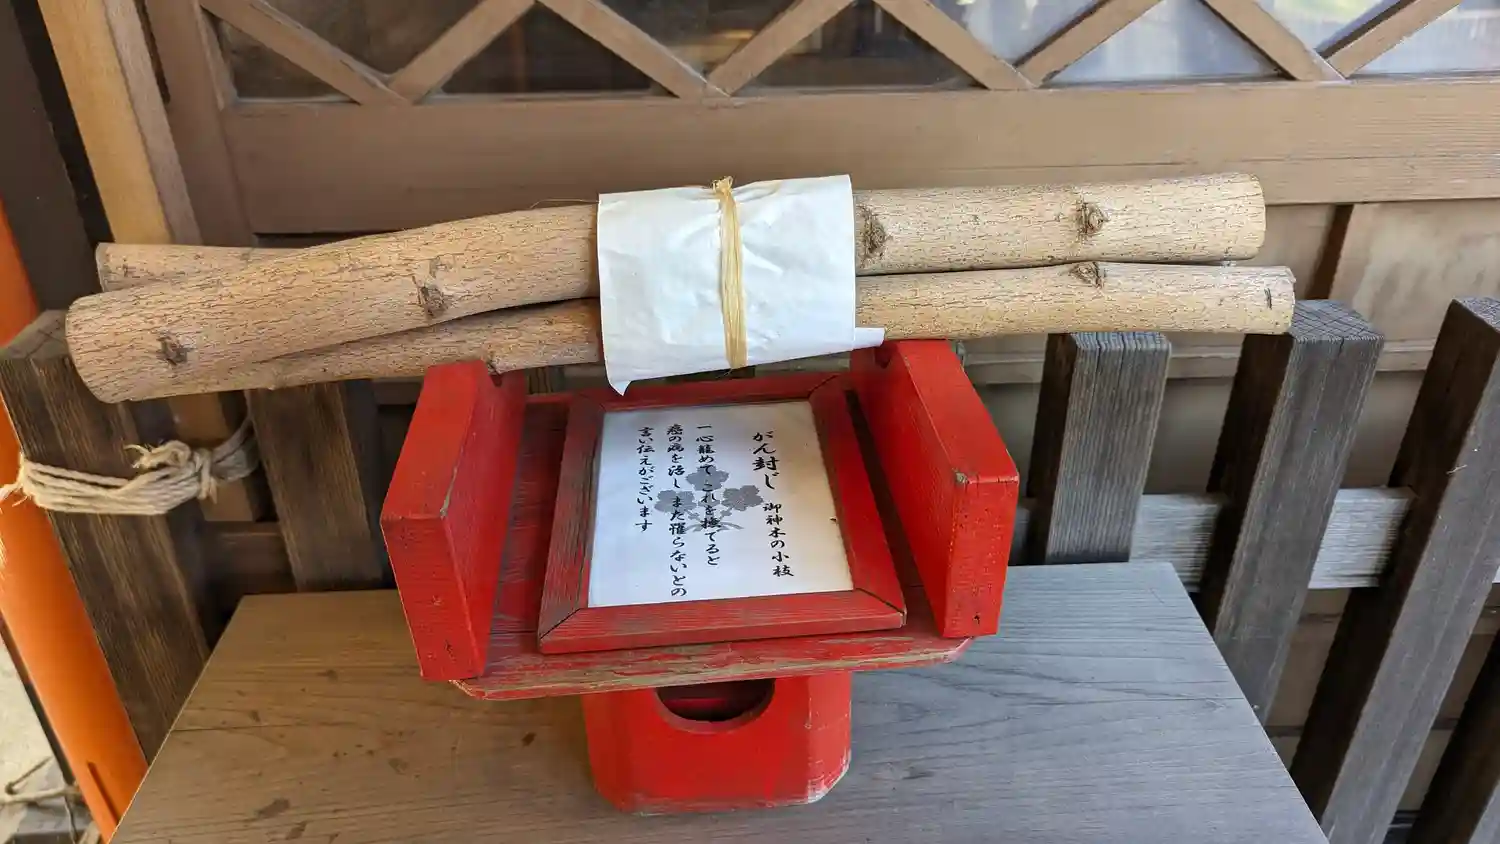 がん封じ 御神木の小枝
一心籠めて これを撫でると
癌の病を治し また罹らないとの
言い伝えがございます